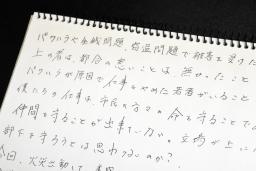 パワハラや金銭問題、窃盗問題で被害を受けた
上の者は、都合の悪いことは、無かったこと
パワハラが原因で仕事をやめた若者がいること
僕たちの仕事は、市民の方々の命を守ることで
仲間を守ることが出来ない方が 立場が上に
部下を守ろうとは思わないのか?
今回、火災出動して